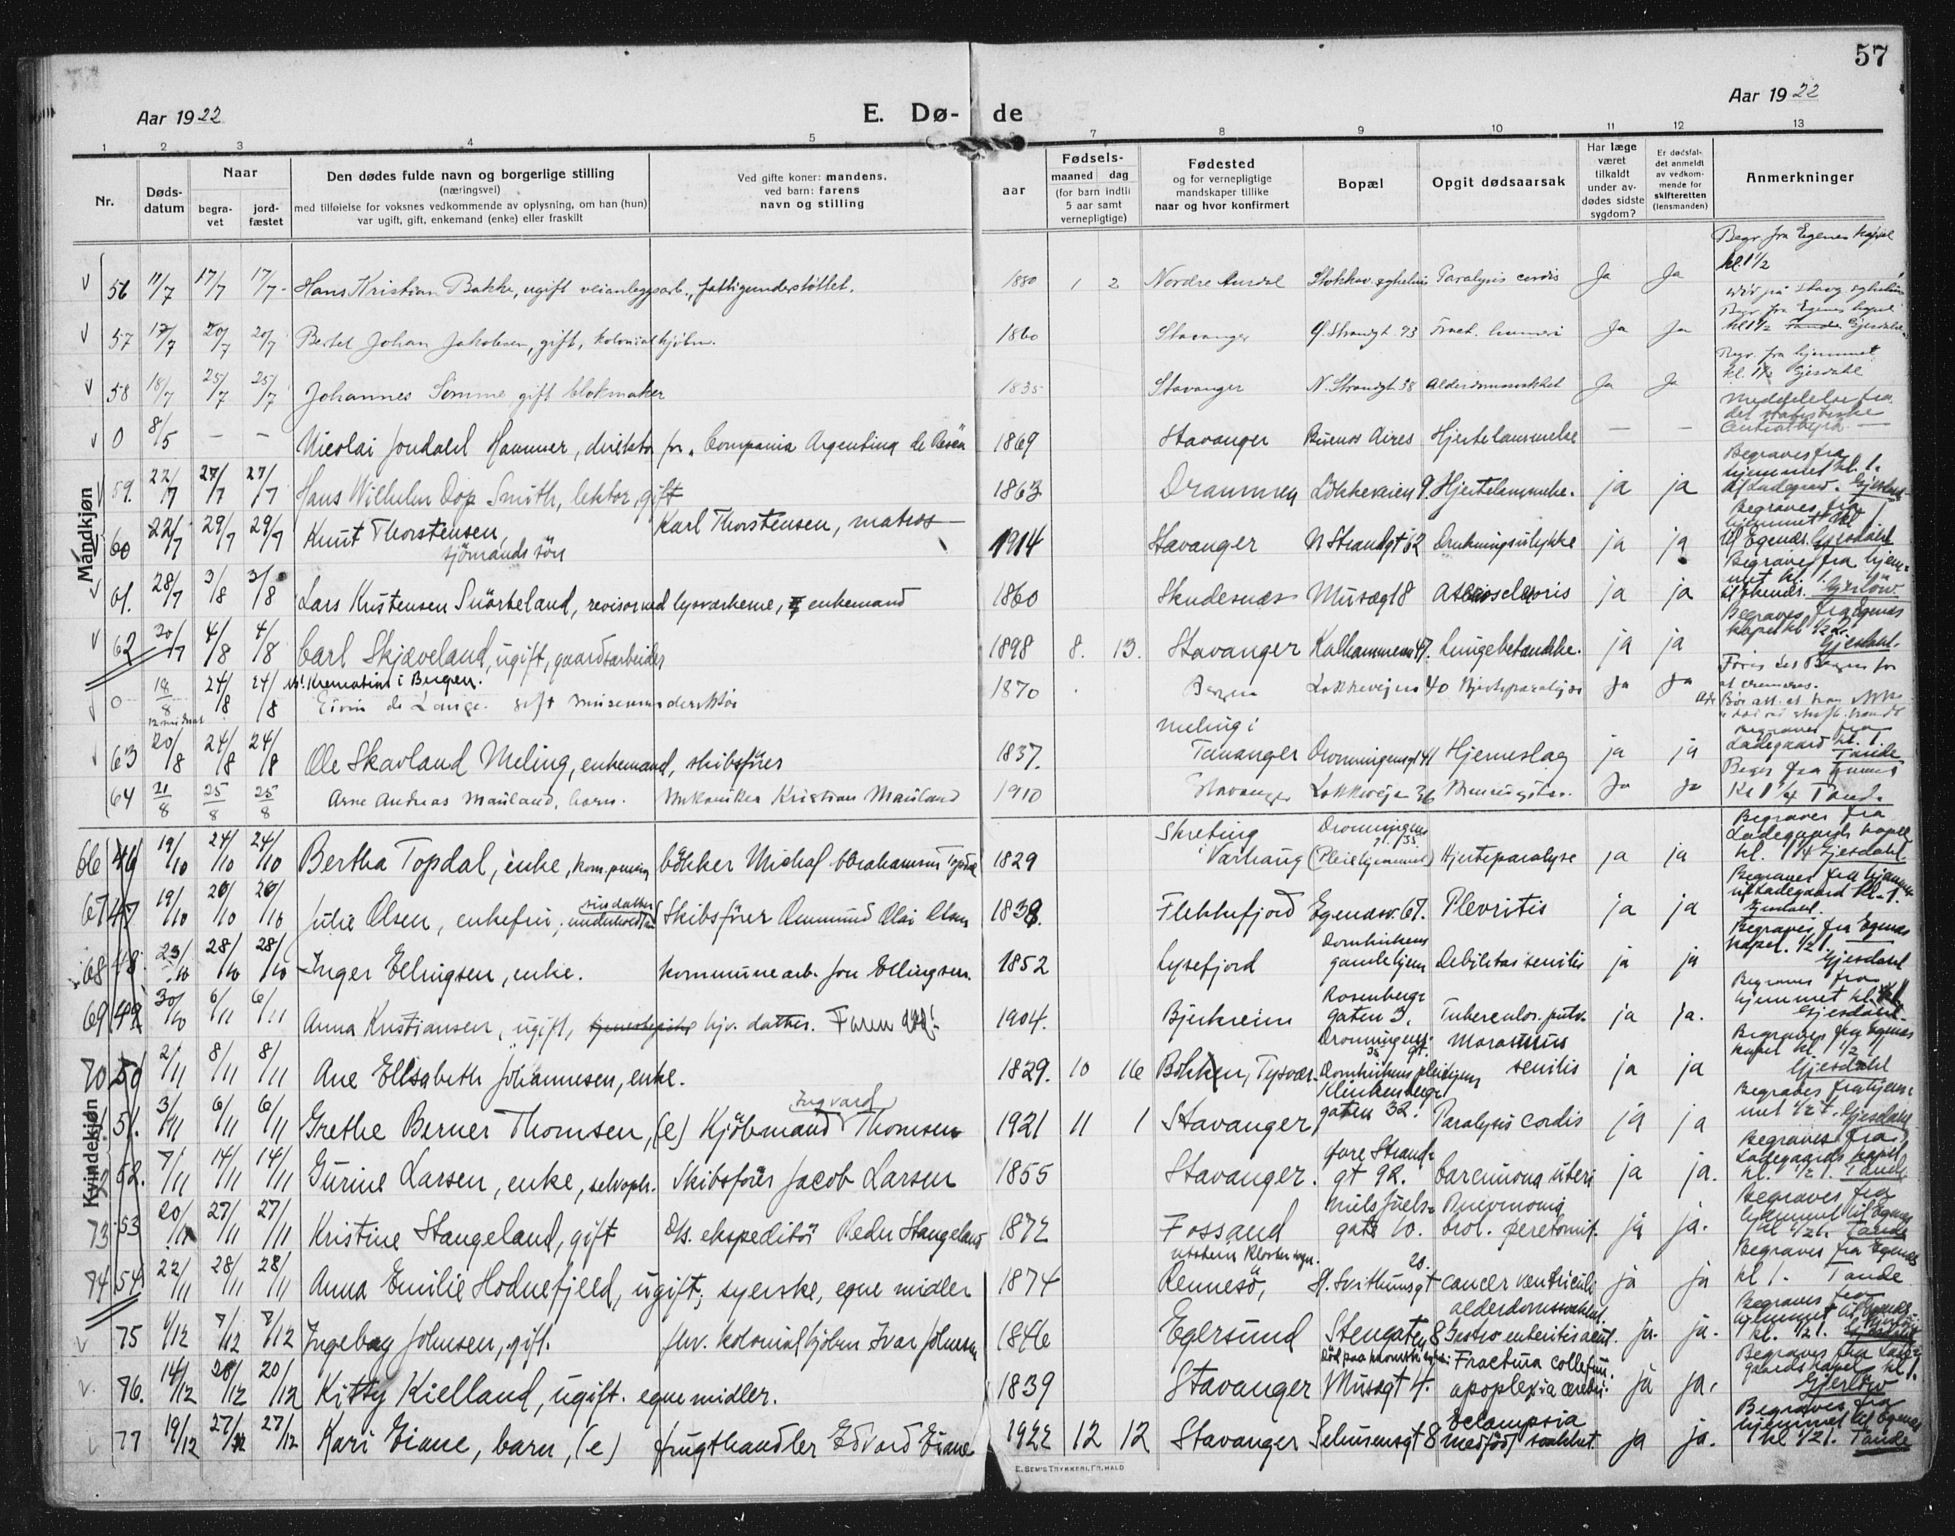 57
Aar 1922 E. Dø- de Aar 1922
1 2 3 4 5 7 8 9 10 11 12 13
Nr.
Døds-
datum
Naar
begra-
vet
jord-
fæstet
Den dødes fulde navn og borgerlige stilling
(næringsvei)
med tilføielse for voksnes vedkommende av oplysning, om han (hun)
var ugift, gift, enkemand (enke) eller fraskilt
Ved gifte koner: mandens.
ved barn: farens
navn og stilling
Fødsels-
aar
maaned dag
(for barn indtil
5 aar samt
vernepligtige)
Fødested
og for vernepligtige
mandskaper tillike
naar og hvor konfirmert
Bopæl
Opgit dødsaarsak
Har læge
været
tilkaldt
under av-
dødes sidste
sygdom?
Er dødsfal-
det anmeldt
av vedkom-
mende for
skifteretten
(lensmanden)
Anmerkninger
Mandkjøn
Begr. fra Egenes kapel
kl. 1 1/2
56 11/7 17/7 17/7 Hans Kristian Bakke, ugift veianlegsarb., fattigunderstøttet. 1880 1 2 Nordre Aurdal Paralysis cordis Ja Ja
57 17/7 20/7 20/7 Bertel Johan Jakobsen, gift, kolonialkjøbm. 1860 Stavanger Ø. Strandgt. 93 Fract. humeri Ja Ja
Begr. fra hjemmet
kl. 1 1/2 Gjesdahl
58 18/7 25/7 25/7 Johannes Sømme gift blokmaker 1835 Stavanger N. Strandgt. 38 Alderdomssvakhet Ja Ja
Meddelelse fra
det statistiske
Centralbyrå.
0 8/5 — — Nicolai Jondahl Hammer, direktør for „Compania Argentina de 1869 Stavanger Buenos Aires Hjertelammelse — —
Begraves fra
hjemmet kl. 1.
59. 22/7 27/7 27/7 Hans Wilhelm Dop Smith, lektor, gift 1863 Drammen Løkkeveien 9 Hjertelammelse. ja ja
Begraves fra
hjemmet kl. 1
60 22/7 29/7 29/7 Knut Thorstensen, Karl Thorstensen, matros 1914 Stavanger N Strandgt 62 Drukningsulykke ja ja
sjömands sön
til Egenæs. Gjesdahl
Begraves fra hjem-
met kl. 1.
61. 28/7 3/8 3/8 Lars Kristensen Snörteland, revisor ved lysværkerne, enkemand 1860 Skudesnæs Musægt 8 ja ja
Begraves fra Egenes
kapel kl. 1/2 2.
62 30/7 4/8 4/8 Carl Skjæveland, ugift, gaardsarbeider 1898 8. 13. Stavanger Kalhammeren 47. Lungebetændelse. ja ja Gjesdahl.
Kremation i Bergen.
0 18/8 24/8 24/8 Eivin de Lange. gift museumsdirektör 1870 Bergen Løkkeveien 40 Hjerteparalyse Ja Ja
Meling i
63 20/8 24/8 24/8 Ole Skavland Meling, enkemand, skibsfører 1837. Tananger Dronningensgt 41 Hjerneslag ja ja
Ladegaard kl. 1
Tande
64 21/8 25/8 25/8 Arne Andreas Mauland, barn. Mekaniker Kristian Mauland 1910 Stavanger Løkkeveje 36 Ja Ja Kl 1 1/4 Tande
Kvindekjøn
Begraves fra
Ladegaards kapel
66 46 19/10 24/10 24/10 Bertha Topdal, enke, kom. pension bökker Michal Abrahamsen Topdal 1829 Skreting i Varhaug Dronningens gt. 35. (Pleiehjemmet) Hjerteparalyse ja ja kl. 1 1/4 Gjesdahl.
Begraves fra hjemmet
til Ladegaard kl. 1.
67 47 19/10 26/10 26/10 Julie Olsen, enkefru, underholdt av sin datter Skibsfører Ommund Olai Olsen 1838. Flekkefjord Egenæsv. 67. Plevritis ja ja
Gjesdahl.
Begraves fra Egenæs
kapel. 1/2 1.
68 48. 23/10 28/10 28/10 Inger Ellingsen, enke. kommunearb. Jon Ellingsen. 1852 Lysefjord Domkirkens gamlehjem Debilitas senilis ja ja
Gjesdahl
Begraves fra
hjemmet kl. 1
69 49 30/10 6/11 6/11 Anna Kristiansen, ugift, hjv. datter. 1904. Bjerkreim Rosenberg- gaten 3. Tuberculos. pulm. ja ja.
Gjesdahl.
Begraves fra Egenæs
kapel kl. 1/2
70 50 2/11 8/11 8/11 Ane Elisabeth Johannesen, enke. 1829. 10 16 Bokken, Tysvær Dronningens gt. 35 Domkirkens pleiehjem Marasmus senilis ja ja
Gjesdahl
Begraves fra hjem-
met 1/2 1. Gjesdahl
51. 3/11 6/11 6/11 Grethe Berner Thomsen, (e) Kjöbmand Ingvard Thomsen 1921 11 1 Stavanger Klinkenberg- gaten 32. Paralysis cordis ja ja
Begraves fra
Ladegaards kapel
52. 7/11 14/11 14/11 Gurine Larsen, enke, selvopholdt. Skibsfører Jacob Larsen 1855 Stavanger. øvre Strand- gt 92. Carcinoma uteri ja ja. kl. 1/2 1. Tande
Begraves fra
hjemmet til Egenæs
73 53 20/11 27/11 27/11 Kristine Stangeland, gift D/s. ekspeditør Peder Stangeland 1872 Fossand Niels Juels- gate 10. Pnevmonia ja ja. kl 1/2 1. Tande
Utstein Kloster sogn.
Begraves fra Egenæs
74 54 22/11 28/11 28/11 Anna Emilie Hodnefjeld, ugift, syerske, egne midler 1874 Rennesö, St. Svithunsgt 28. cancer ventriculi ja ja kl 1. Tande
alderdomssvakhet.
75 1/12 8/12 8/12 Ingeborg Johnsen, gift. fhv. kolonialkjöbm Ivar Johnsen 1846 Egersund Stengaten 8 Gastro enteritis acut. ja. ja.
Begraves fra Lade-
gaards kapel kl. 1.
76. 14/12 20/12 20/12 Kitty Kielland, ugift. egne midler. 1839 Stavanger Musægt 4. Fractura colli fem. apoplexia cerebri. ja ja.
Gjerløw
Begraves fra
hjemmet til Egenæs
77 19/12 27/12 27/12 Kari Eiane, barn, (e) frugthandler Edvard Eiane 1922 12 12 Stavanger Jelmsensgt 8 Eclampsia medfødt svakhet. ja ja. kl 1/2 1. Tande
E. SEM'S TRYKKERI, FR.HALD